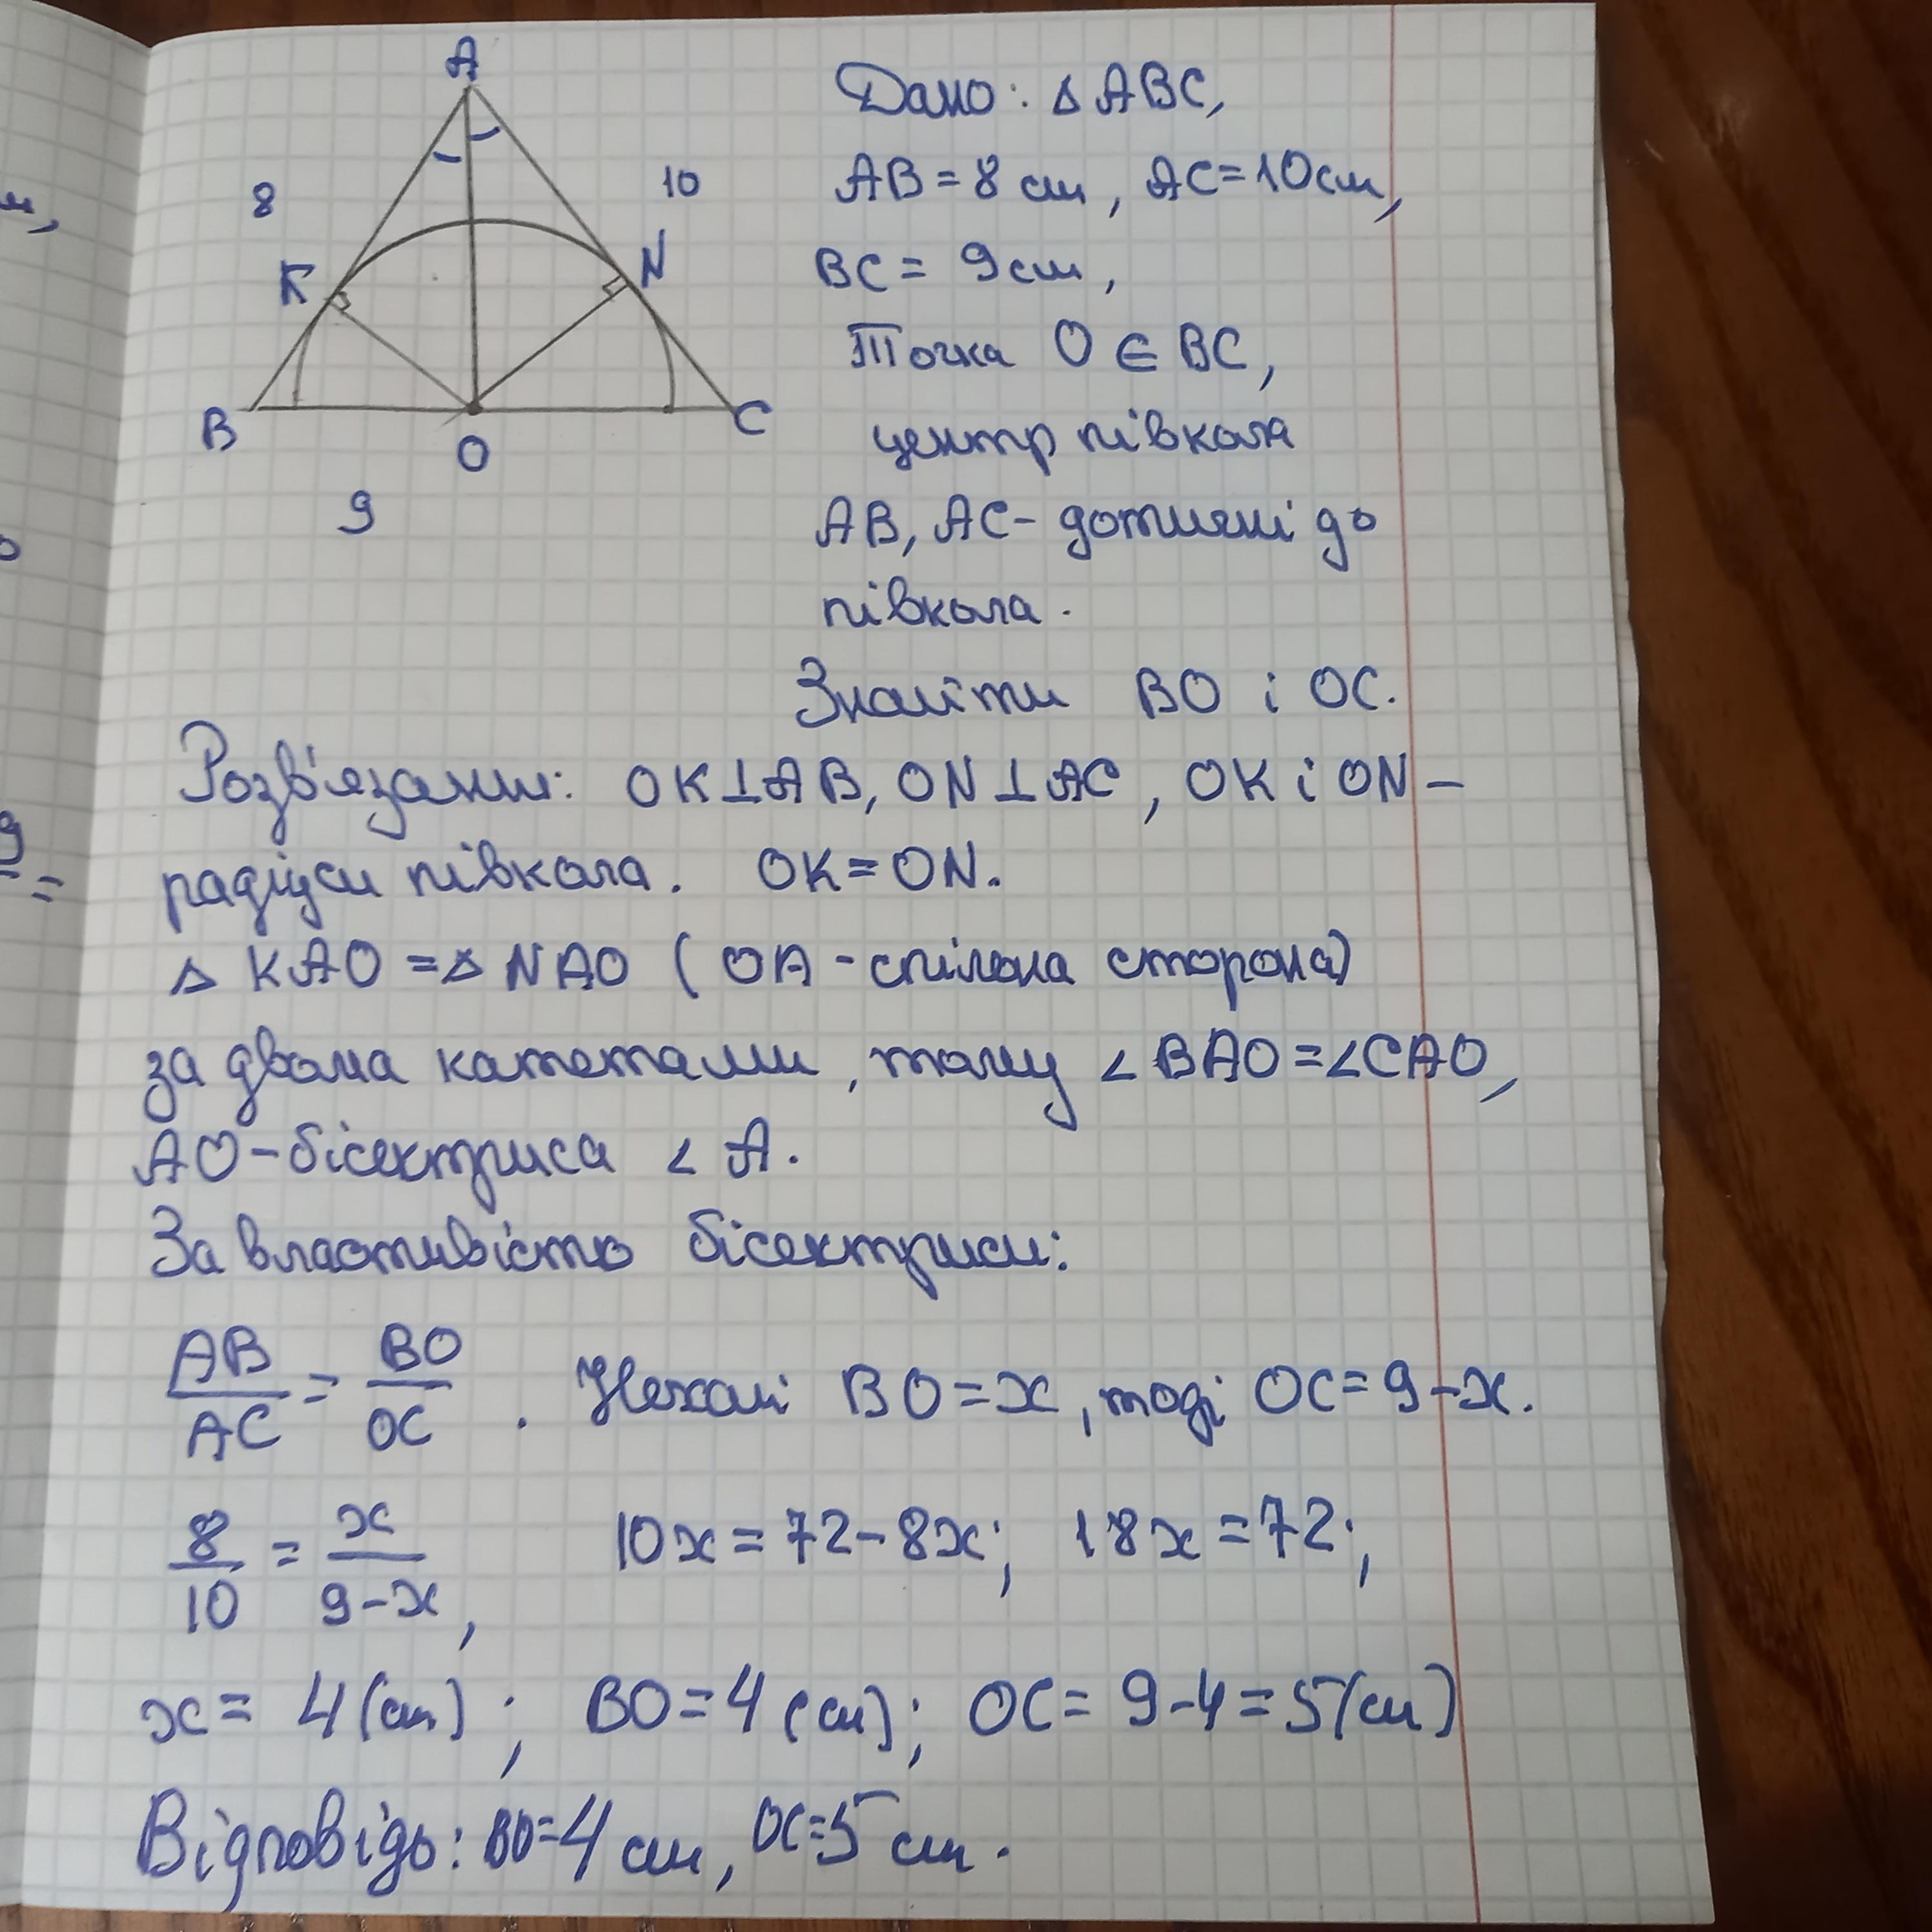 A
8
10
K
N
B
O
C
9
Дано: △ABC,
AB = 8 см, AC = 10 см,
BC = 9 см,
Точка O ∈ BC,
центр півкола
AB, AC - дотичні до
півкола.
Знайти BO і OC.
Розв'язання: OK⊥AB, ON⊥AC, OK і ON –
радіуси півкола. OK = ON.
△ KAO = △ NAO (OA - спільна сторона)
за двома катетами, тому ∠BAO = ∠CAO,
AO - бісектриса ∠ A.
За властивістю бісектриси:
AB/AC = BO/OC. Нехай BO = x, тоді OC = 9 - x.
8/10 = x/9-x, 10x = 72 - 8x; 18x = 72;
x = 4 (см); BO = 4 (см); OC = 9 - 4 = 5 (см)
Відповідь: BO = 4 см, OC = 5 см.